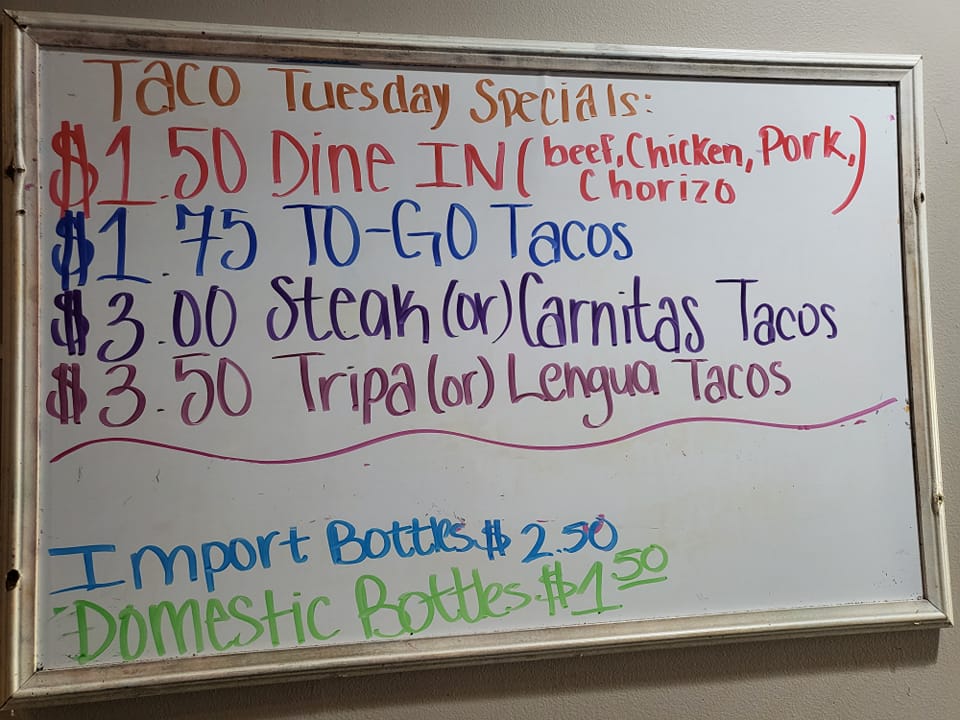 Taco Tuesday Specials:
$1.50 Dine IN (beef, Chicken, Pork,
Chorizo)
$1.75 TO-GO Tacos
$3.00 Steak (or) Carnitas Tacos
$3.50 Tripa (or) Lengua Tacos
Import Bottles.$2.50
Domestic Bottles.$1 50